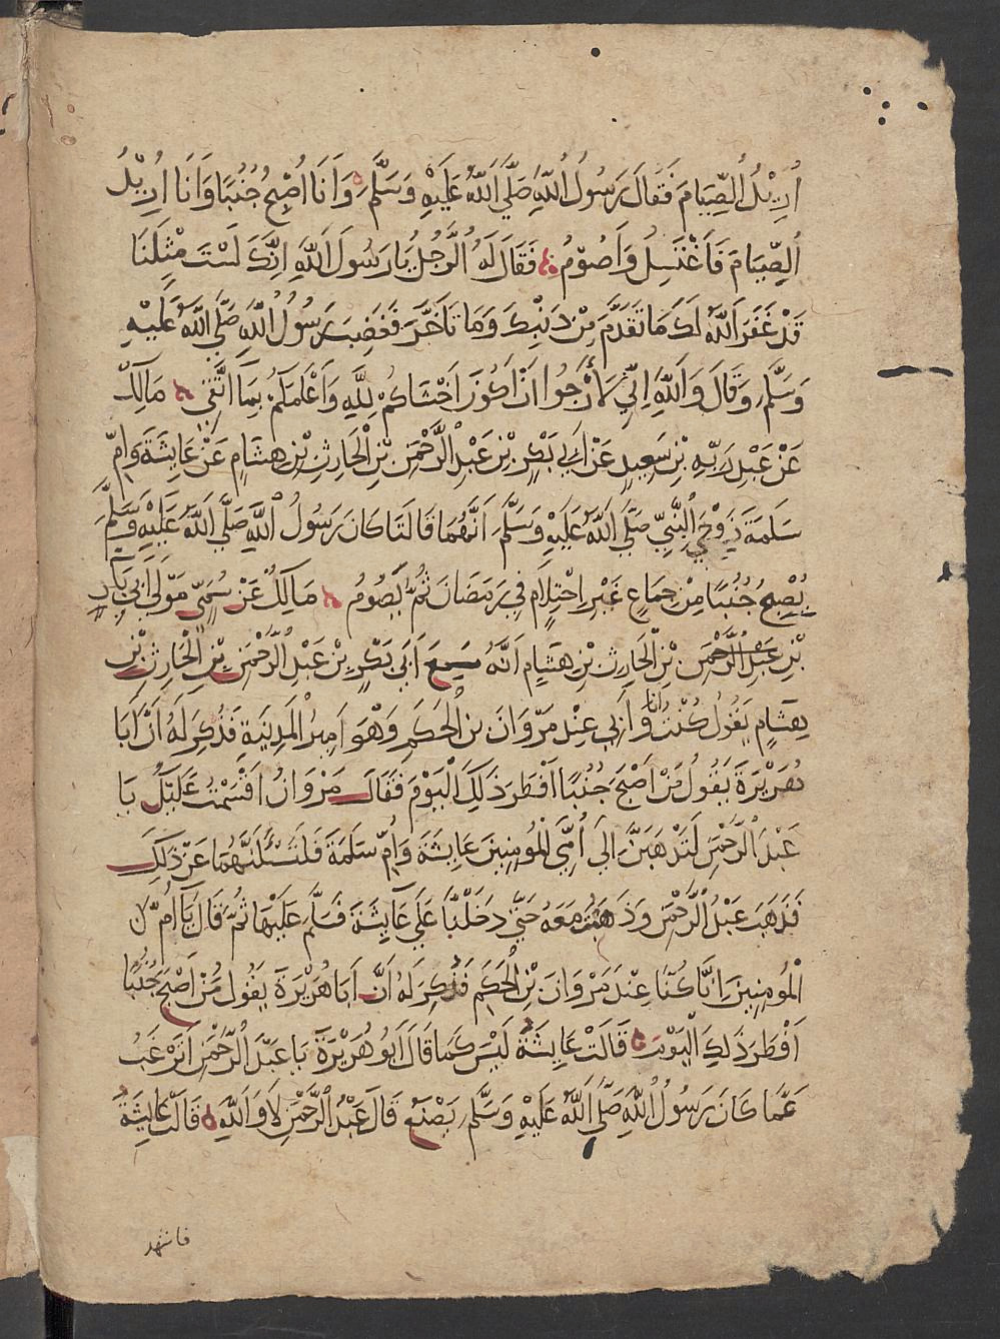 أُرِيْدُ الصِّيَامَ فَقَالَ رَسُولُ اللهِ صَلَّى اللهُ عَلَيْهِ وَسَلَّمَ وَأَنَا أُصْبِحُ جُنُبًا وَأَنَا أُرِيْدُ
الصِّيَامَ فَأَغْتَسِلُ وَأَصُوْمُ فَقَالَ لَهُ الرَّجُلُ يَا رَسُولَ اللهِ إِنَّكَ لَسْتَ مِثْلَنَا
قَدْ غَفَرَ اللهُ لَكَ مَا تَقَدَّمَ مِنْ ذَنْبِكَ وَمَا تَأَخَّرَ فَغَضِبَ رَسُولُ اللهِ صَلَّى اللهُ عَلَيْهِ
وَسَلَّمَ وَقَالَ وَاللهِ إِنِّي لَأَرْجُوا أَنْ أَكُونَ أَخْشَاكُمْ لِلَّهِ وَأَعْلَمَكُمْ بِمَا أَتَّقِي مَالِكٌ
عَنْ عَبْدِ رَبِّهِ بْنِ سَعِيدٍ عَنْ أَبِي بَكْرِ بْنِ عَبْدِ الرَّحْمَنِ بْنِ الْحَارِثِ بْنِ هِشَامٍ عَنْ عَايِشَةَ وَأُمِّ
سَلَمَةَ زَوْجَيِ النَّبِيِّ صَلَّى اللهُ عَلَيْهِ وَسَلَّمَ أَنَّهُمَا قَالَتَا كَانَ رَسُولُ اللهِ صَلَّى اللهُ عَلَيْهِ وَسَلَّمَ
يُصْبِحُ جُنُبًا مِنْ جِمَاعٍ غَيْرِ احْتِلَامٍ فِي رَمَضَانَ ثُمَّ يَصُومُ مَالِكٌ عَنْ سُمَيٍّ مَوْلَى أَبِي بَكْرِ
بْنِ عَبْدِ الرَّحْمَنِ بْنِ الْحَارِثِ بْنِ هِشَامٍ أَنَّهُ سَمِعَ أَبَا بَكْرِ بْنَ عَبْدِ الرَّحْمَنِ بْنِ الْحَارِثِ بْنِ
هِشَامٍ يَقُولُ كُنْتُ أنا وَأَبِي عِنْدَ مَرْوَانَ بْنِ الْحَكَمِ وَهْوَ أَمِيرُ الْمَدِينَةِ فَذُكِرَ لَهُ أَنَّ أَبَا
هُرَيْرَةَ يَقُولُ مَنْ أَصْبَحَ جُنُبًا أَفْطَرَ ذَلِكَ الْيَوْمَ فَقَالَ مَرْوَانُ أَقْسَمْتُ عَلَيْكَ يَا
عَبْدَ الرَّحْمَنِ لَتَذْهَبَنَّ إِلَى أُمَّيِ الْمُومِنِينَ عَايِشَةَ وَأُمِّ سَلَمَةَ فَلَتَسْئَلَنَّهُمَا عَنْ ذَلِكَ
فَذَهَبَ عَبْدُ الرَّحْمَنِ وَذَهَبْتُ مَعَهُ حَتَّى دَخَلْنَا عَلَى عَايِشَةَ فَسَلَّمَ عَلَيْهَا ثُمَّ قَالَ يَا أُمَّ
الْمُومِنِينَ إِنَّا كُنَّا عِنْدَ مَرْوَانَ بْنِ الْحَكَمِ فَذُكِرَ لَهُ أَنَّ أَبَا هُرَيْرَةَ يَقُولُ مَنْ أَصْبَحَ جُنُبًا
أَفْطَرَ ذَلِكَ الْيَوْمَ قَالَتْ عَايِشَةُ لَيْسَ كَمَا قَالَ أَبُو هُرَيْرَةَ يَا عَبْدَ الرَّحْمَنِ أَتَرْغَبُ
عَمَّا كَانَ رَسُولُ اللهِ صَلَّى اللهُ عَلَيْهِ وَسَلَّمَ يَصْنَعُ قَالَ عَبْدُ الرَّحْمَنِ لَا وَاللهِ قَالَتْ عَايِشَةُ
فاشهد